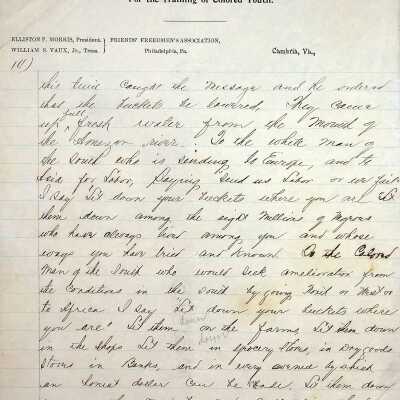 For the Training of Colored Youth.
ELLISTON P. MORRIS, President. } FRIENDS' FREEDMEN'S ASSOCIATION,
WILLIAM S. VAUX, Jr., Treas. } Philadelphia, Pa. Cambria, Va.,
10)
this time caught the message and he ordered
that the buckets be lowered. They came
up full fresh water from the mouth of
the Amazon river. To the white man of
the South who is sending to Europe, and to
Asia for Labor, saying send us Labor or we
I say "Let down your buckets where you are" Let
them down among the eight Millions of Negroes
who have always been among you and whose
ways you have tried and known. To the Colored
Man of the South who would seek amelioration from
the Conditions in the South by going North or West or
to Africa I say "Let down your buckets where
you are" Let them down on the farms, Let them down
in the shops Let them down in grocery stores, in Dry goods
stores in Banks, and in every avenue by which
an honest dollar can be made. Let them down